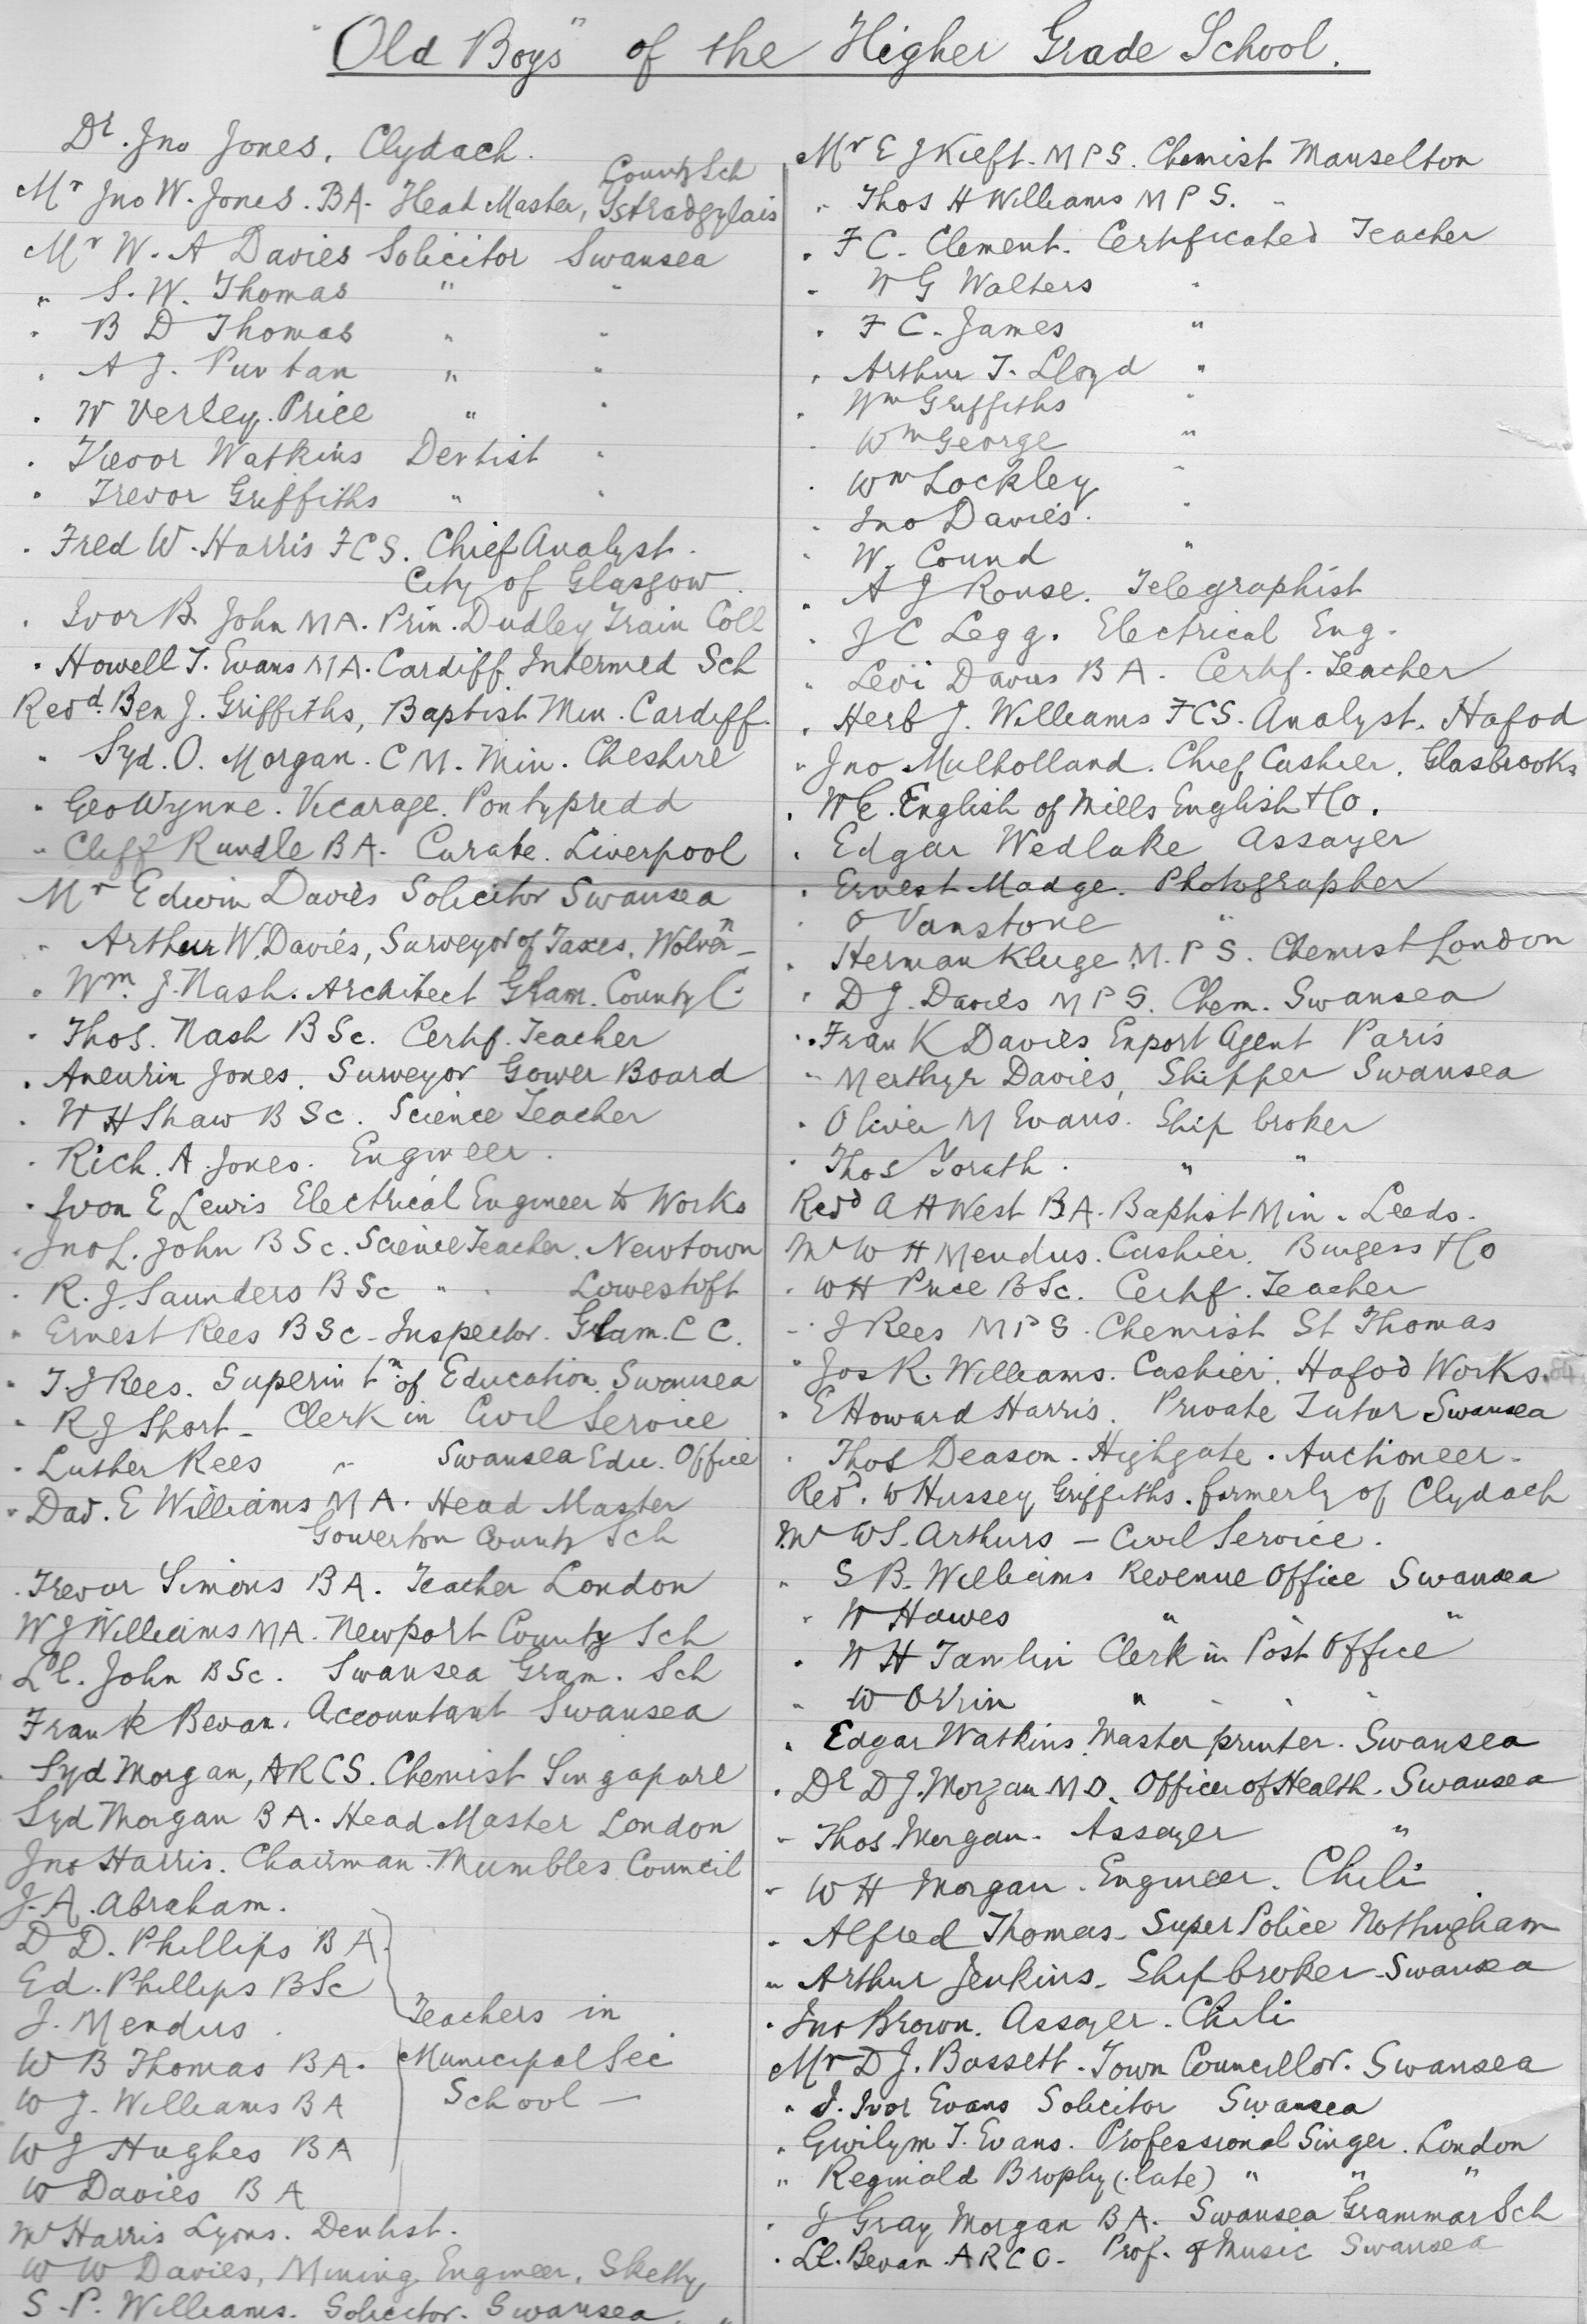 "Old Boys" of the Higher Grade School.
Dr. Jno Jones, Clydach.
County Sch
Mr Jno W. Jones. BA. Head Master, Ystradgylais
Mr W. A Davies Solicitor Swansea
" S. W. Thomas " "
" B D Thomas " "
" A J. " "
" W Verley. Price " "
" Trevor Watkins Dentist "
" Trevor Griffiths " "
" Fred W. Harris FCS. Chief Analyst.
City of Glasgow.
" Ivor B. John MA. Prin. Dudley Train Coll
" Howell T. Evans MA. Cardiff Intermed Sch
Revd. Ben J. Griffiths, Baptist Min. Cardiff.
" Syd. O. Morgan. C M. Min. Cheshire
" Geo Wynne. Vicarage. Pontypridd
" Cliff Rundle BA. Curate. Liverpool
Mr Edwin Davies Solicitor Swansea
" Arthur W. Davies, Surveyor of Taxes. Wolvn
" Wm. J. Nash. Architect Glam. County C.
" Thos. Nash B Sc. Certf. Teacher
" Aneurin Jones. Surveyor Gower Board
" W H Shaw B Sc. Science Teacher
" Rich. A. Jones. Engineer.
" Ivon E Lewis Electrical Engineer to Works
" Jno L. John B Sc. Science Teacher. Newtown
" R. J. Saunders B Sc " " Lowestoft
" Ernest Rees B Sc - Inspector. Glam. C C.
" T. J Rees. Superintn. of Education. Swansea
" R J Short - Clerk in Civil Service
" Luther Rees " Swansea Edu. Office
" Dad. E Williams MA. Head Master
Gowerton County Sch
" Trevor Simons BA. Teacher London
W J Williams MA. Newport County Sch
Ll. John B Sc. Swansea Gram. Sch
Frank Bevan. Accountant Swansea
Syd Morgan, ARCS. Chemist Singapore
Syd Morgan BA. Head Master London
Jno Harris. Chairman. Mumbles Council
J. A. Abraham.
D D. Phillips BA.
Ed. Phillips B Sc
J. Mendus.
W B Thomas BA.
W J. Williams BA
W J Hughes BA
W Davies BA
Teachers in
Municipal Sec
School -
Mr Harris Lyons. Dentist.
W W Davies, Mining Engineer, Sketty
S. P. Williams. Solicitor. Swansea.
Mr E J Kieft. M P S. Chemist Manselton
" Thos H Williams M P S. "
" F C. Clement. Certificated Teacher
" W G Walters "
" F C. James "
" Arthur T. Lloyd "
" Wm Griffiths "
" Wm George "
" Wm Lockley "
" Jno Davies. "
" W. Cound "
" A J Rouse. Telegraphist
" J C Legg. Electrical Eng.
" Levi Davies BA. Certf. Teacher
" Herb J. Williams FCS. Analyst. Hafod
" Jno Mulholland. Chief Cashier. Glasbrooks
" W E. English of Mills English & Co.
" Edgar Wedlake Assayer
" Ernest Madge. Photographer
" O Vanstone "
" Herman Kluge M. P S. Chemist London
" D J. Davies M P S. Chem. Swansea
" Frank Davies Export Agent Paris
" Merthyr Davies, Shipper Swansea
" Oliver M Evans. Ship broker
" Thos Yorath. " "
Revd A H West BA. Baptist Min. Leeds.
Mr W H Mendus. Cashier. Burgess & Co
" W H Price B Sc. Certf. Teacher
" J Rees M P S. Chemist St Thomas
" Jos R. Williams. Cashier. Hafod Works.
" E Howard Harris. Private Tutor Swansea
" Thos Deason. Highgate. Auctioneer.
Revd. W Hussey Griffiths. formerly of Clydach
Mr W S. Arthurs - Civil Service.
" S B. Williams Revenue Office Swansea
" W Hawes " "
" W H Tamlin Clerk in Post Office
" W Orrin " " "
" Edgar Watkins Master printer. Swansea
" Dr D J. Morgan M D. Officer of Health. Swansea
" Thos Morgan. Assayer "
" W H Morgan. Engineer. Chili
" Alfred Thomas - Super Police Nottingham
" Arthur Jenkins - Ship broker - Swansea
" Jno Brown. Assayer. Chili
Mr D J. Bassett. Town Councillor. Swansea
" J. Ivor Evans Solicitor Swansea
" Gwilym T. Evans. Professional Singer. London
" Reginald Brophy (late) " " "
" J Gray Morgan BA. Swansea Grammar Sch
" Ll. Bevan. A R C O. Prof. of Music Swansea